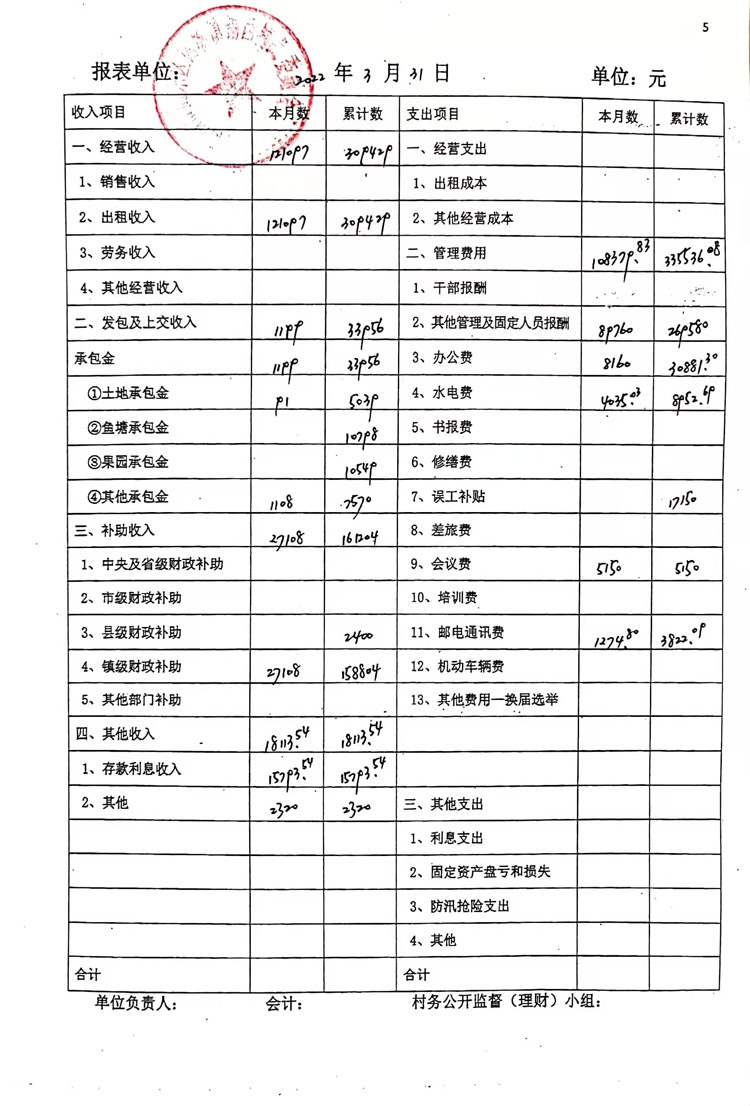 5
报表单位: 2022 年 3 月 31 日 单位: 元
收入项目 本月数 累计数 支出项目 本月数 累计数
一、经营收入 121097 309429 一、经营支出
1、销售收入 1、出租成本
2、出租收入 121097 309429 2、其他经营成本
3、劳务收入 二、管理费用 108379.83 335536.08
4、其他经营收入 1、干部报酬
二、发包及上交收入 1199 33956 2、其他管理及固定人员报酬 89760 269580
承包金 1199 33956 3、办公费 8160 30881.30
①土地承包金 91 5039 4、水电费 4035.03 8952.69
②鱼塘承包金 10798 5、书报费
③果园承包金 10549 6、修缮费
④其他承包金 1108 7570 7、误工补贴 17150
三、补助收入 27108 161204 8、差旅费
1、中央及省级财政补助 9、会议费 5150 5150
2、市级财政补助 10、培训费
3、县级财政补助 2400 11、邮电通讯费 1274.80 3822.09
4、镇级财政补助 27108 158804 12、机动车辆费
5、其他部门补助 13、其他费用一换届选举
四、其他收入 18113.54 18113.54
1、存款利息收入 15793.54 15793.54
2、其他 2320 2320 三、其他支出
1、利息支出
2、固定资产盘亏和损失
3、防汛抢险支出
4、其他
合计 合计
单位负责人: 会计: 村务公开监督（理财）小组: